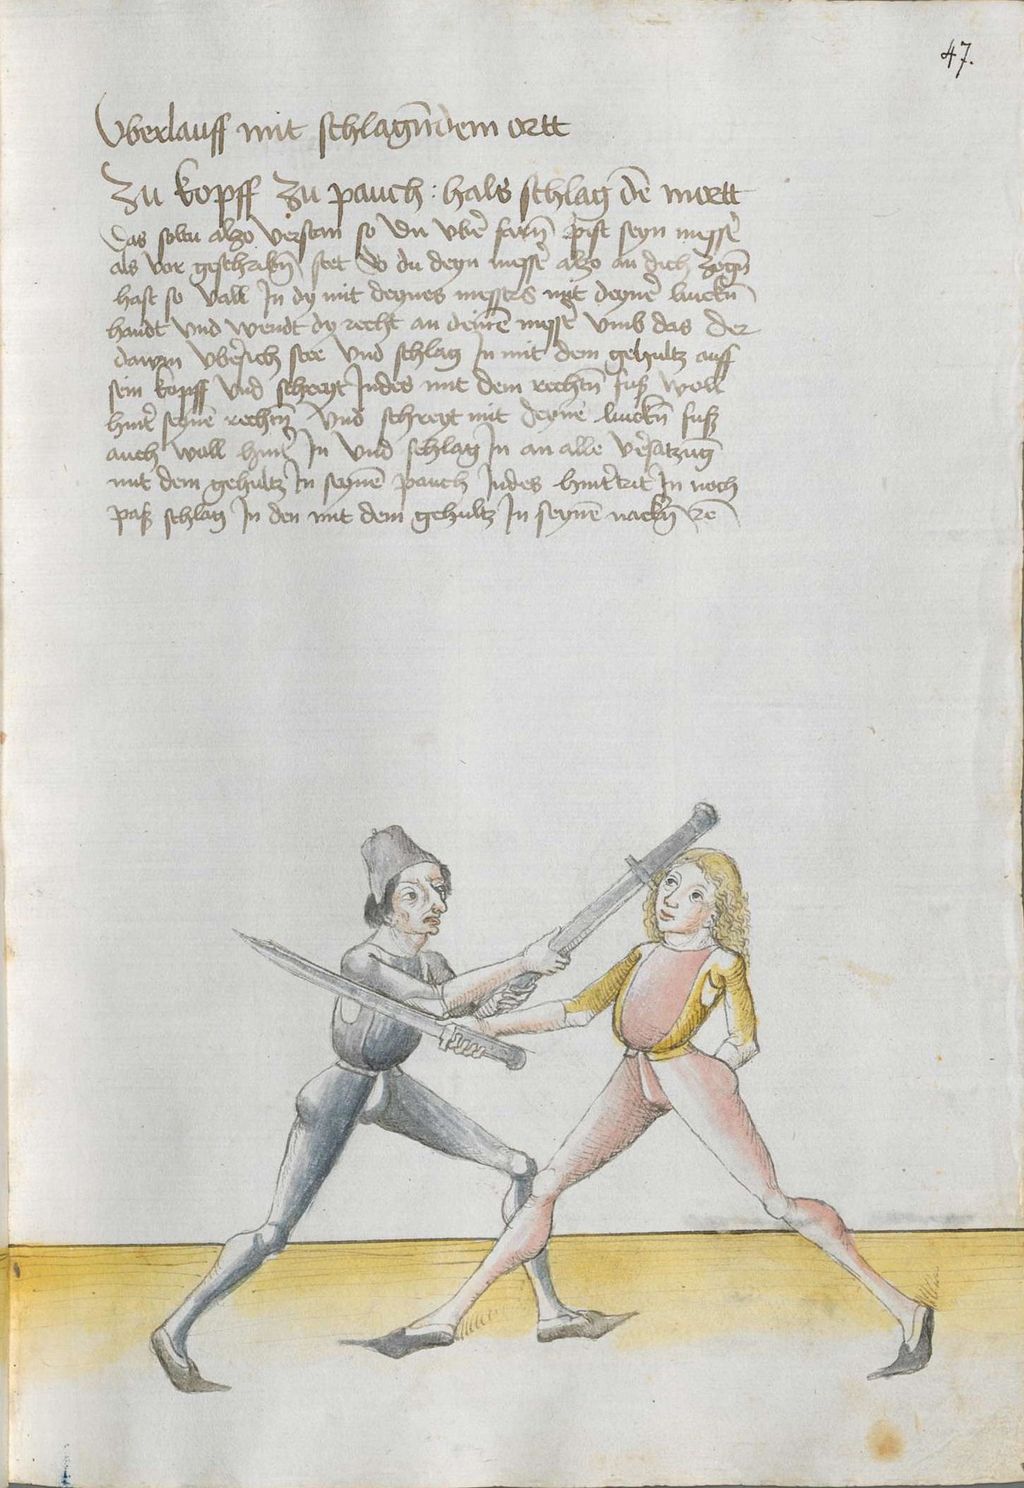 47.
Vberlauff mit schlagn̄dem ortt
Zu kopff zu pauch : hals schlag dē mortt
Das soltu also versten so du vbē farn̄ pist seyn messē
als vor geschribn̄ stet So du deyn messē also an dich zogn̄
hast so vall In dy mit deynes messers mit deynē linckn̄
handt vnd wendt dy recht an deinē messē vmb das der
dawm vbersich stee vnd schlag In mit dem gehultz auff
sein kopff vnd schreyt Indes mit dem rechtn̄ fuß woll
hintē seynē rechtn̄ vnd schreyt mit deynē linckn̄ fuß
auch woll hintē In vnd schlag In an alle versatzuḡ
mit dem gehultz In seynē pauch Indes hintertrit In noch
paß schlag In den mit dem gehultz In seynē nackn̄ rē